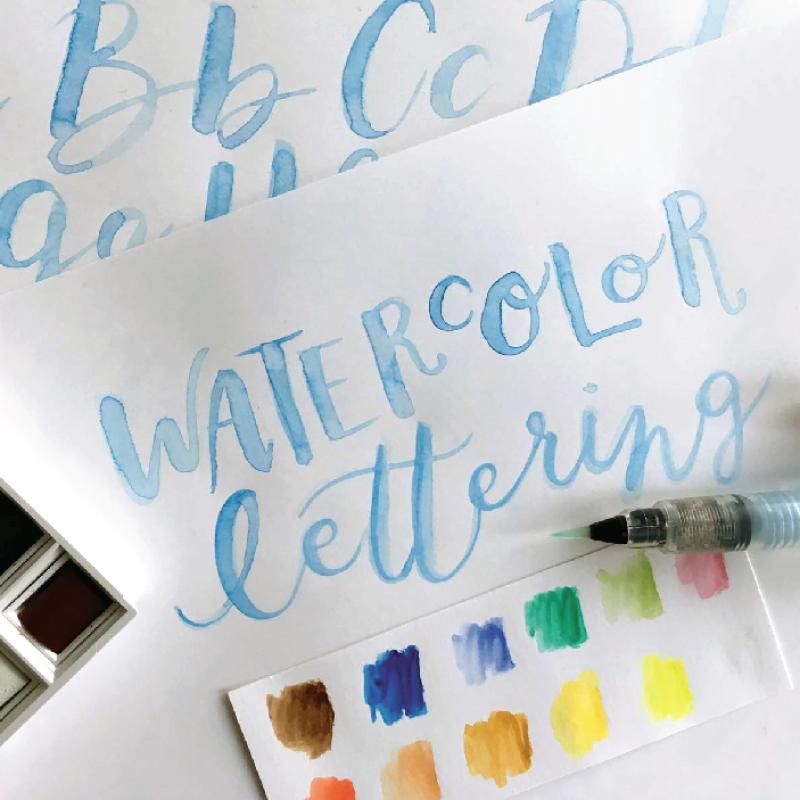 B b C c D
WATERCOLOR
lettering